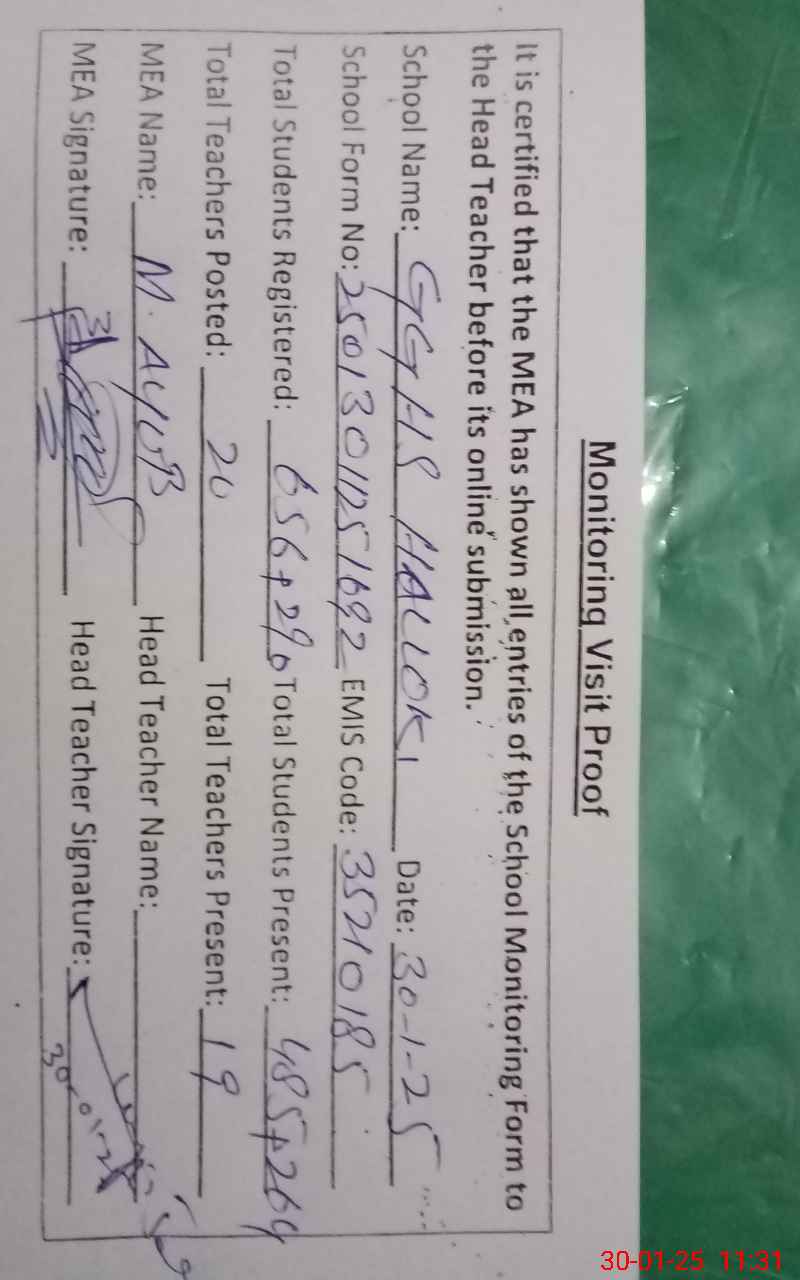 Monitoring Visit Proof
It is certified that the MEA has shown all entries of the School Monitoring Form to
the Head Teacher before its online submission.
School Name: GGHS HALLOKI Date: 30-1-25
School Form No: 25013011251692 EMIS Code: 35210185
Total Students Registered: 656+290 Total Students Present: 485+264
Total Teachers Posted: 20 Total Teachers Present: 19
MEA Name: M. AYUB Head Teacher Name:
MEA Signature: Head Teacher Signature:
30-01-25
30-01-25 11:31